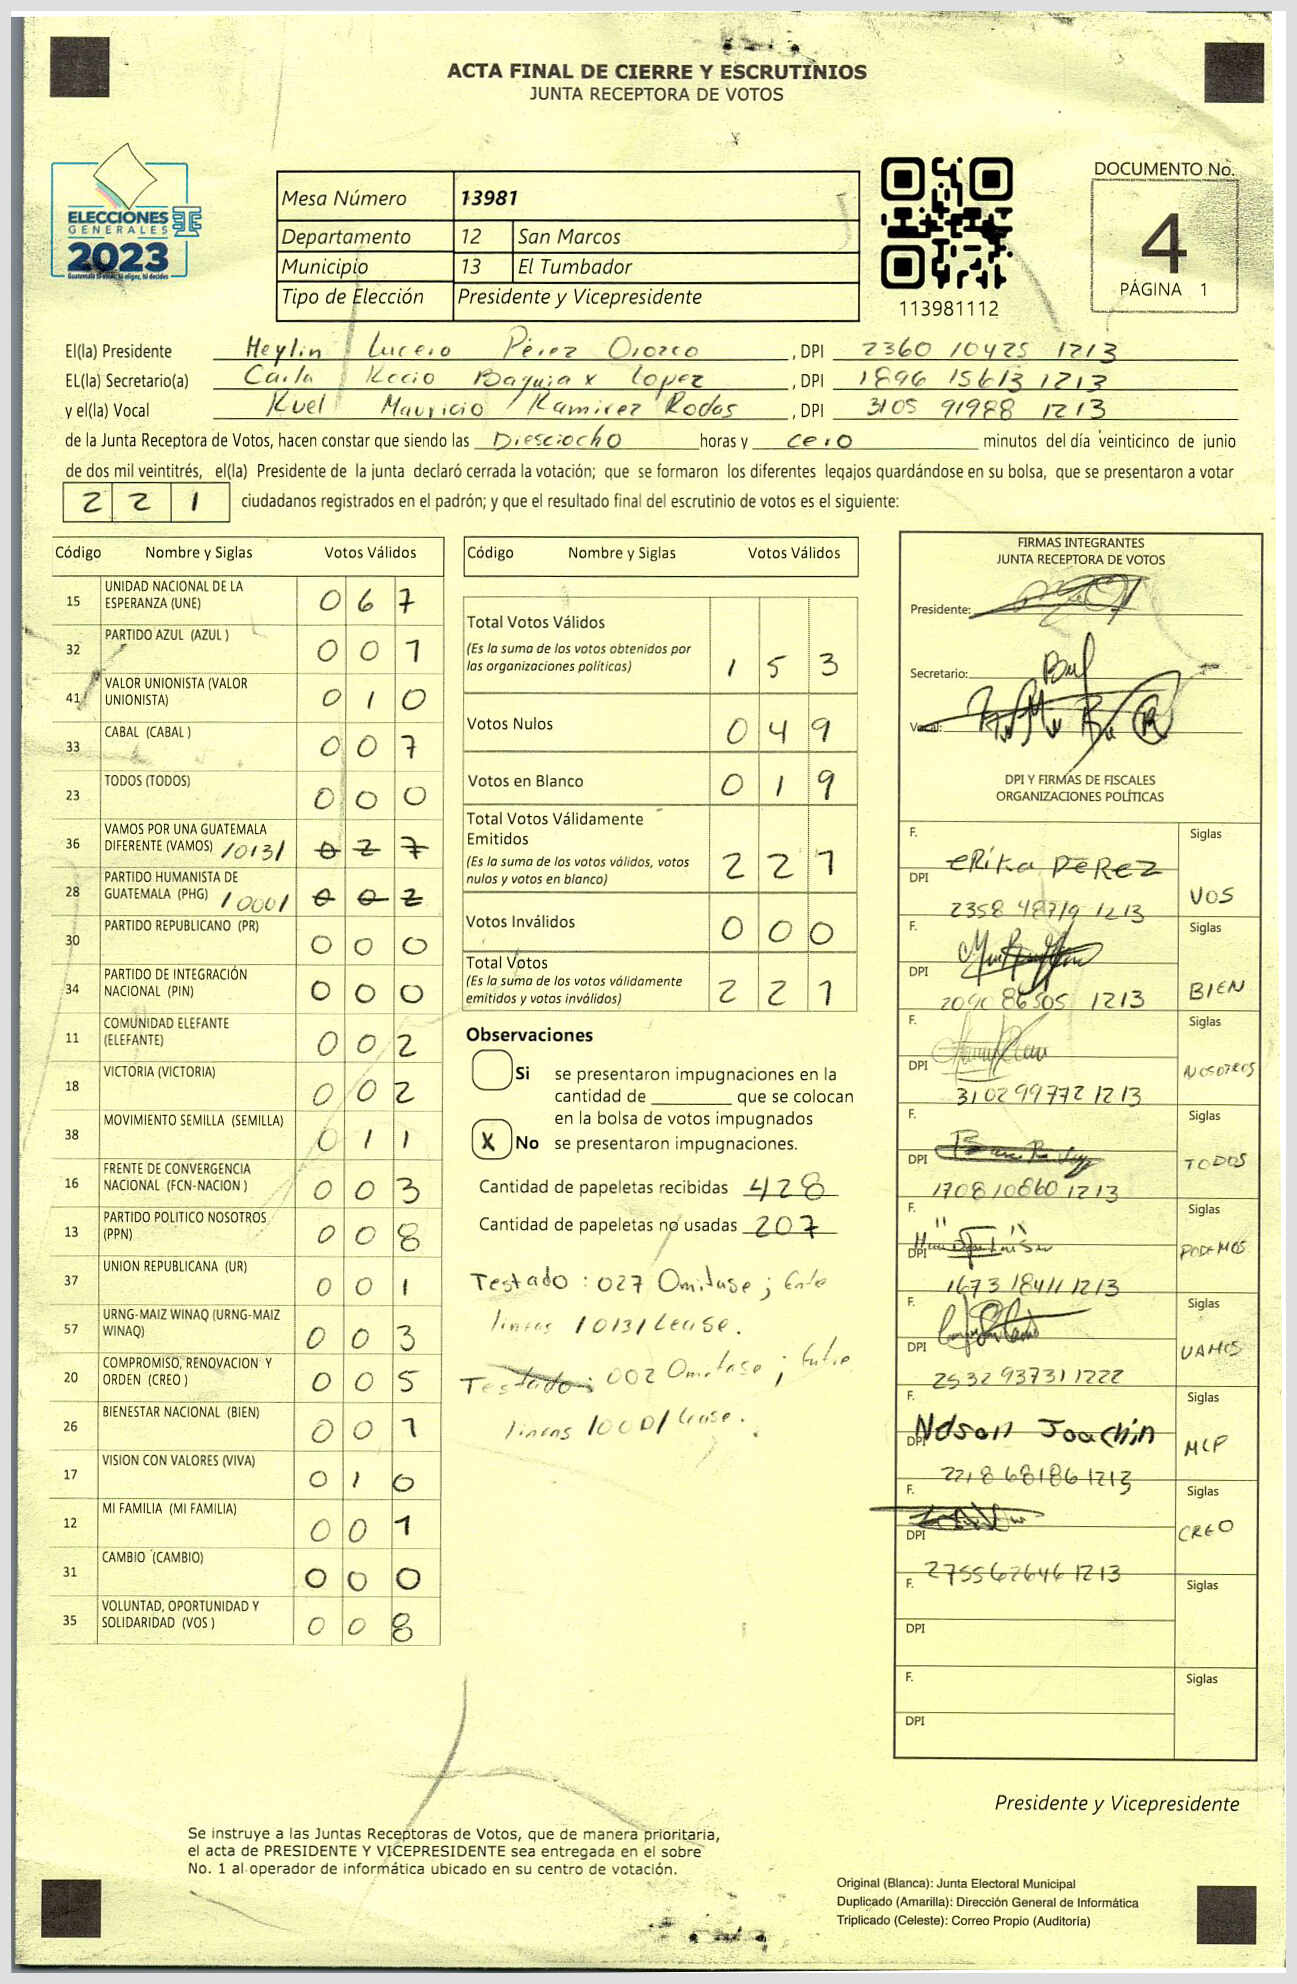 ACTA FINAL DE CIERRE Y ESCRUTINIOS
JUNTA RECEPTORA DE VOTOS
ELECCIONES
GENERALES
2023
Mesa Número 13981
Departamento 12 San Marcos
Municipio 13 El Tumbador
Tipo de Elección Presidente y Vicepresidente
113981112
DOCUMENTO No.
4
PÁGINA 1
El(la) Presidente Heylin Lucero Pérez Orozco , DPI 2360 10425 1213
EL(la) Secretario(a) Carla Rocio Baquiax Lopez , DPI 1896 15613 1213
y el(la) Vocal Mauricio Ramirez Rodas , DPI 3105 91988 1213
de la Junta Receptora de Votos, hacen constar que siendo las Diesciocho horas y cero minutos del día veinticinco de junio
de dos mil veintitrés, el(la) Presidente de la junta declaró cerrada la votación; que se formaron los diferentes legajos quardándose en su bolsa, que se presentaron a votar
2 2 1 ciudadanos registrados en el padrón; y que el resultado final del escrutinio de votos es el siguiente:
Código Nombre y Siglas Votos Válidos
15 UNIDAD NACIONAL DE LA ESPERANZA (UNE) 0 6 7
32 PARTIDO AZUL (AZUL ) 0 0 1
41 VALOR UNIONISTA (VALOR UNIONISTA) 0 1 0
33 CABAL (CABAL ) 0 0 7
23 TODOS (TODOS) 0 0 0
36 VAMOS POR UNA GUATEMALA DIFERENTE (VAMOS) /013/ 0 2 7
28 PARTIDO HUMANISTA DE GUATEMALA (PHG) /000/ 0 0 2
30 PARTIDO REPUBLICANO (PR) 0 0 0
34 PARTIDO DE INTEGRACIÓN NACIONAL (PIN) 0 0 0
11 COMUNIDAD ELEFANTE (ELEFANTE) 0 0 2
18 VICTORIA (VICTORIA) 0 0 2
38 MOVIMIENTO SEMILLA (SEMILLA) 0 1 1
16 FRENTE DE CONVERGENCIA NACIONAL (FCN-NACION ) 0 0 3
13 PARTIDO POLITICO NOSOTROS (PPN) 0 0 8
37 UNION REPUBLICANA (UR) 0 0 1
57 URNG-MAIZ WINAQ (URNG-MAIZ WINAQ) 0 0 3
20 COMPROMISO, RENOVACION Y ORDEN (CREO ) 0 0 5
26 BIENESTAR NACIONAL (BIEN) 0 0 1
17 VISION CON VALORES (VIVA) 0 1 0
12 MI FAMILIA (MI FAMILIA) 0 0 1
31 CAMBIO (CAMBIO) 0 0 0
35 VOLUNTAD, OPORTUNIDAD Y SOLIDARIDAD (VOS ) 0 0 8
Código Nombre y Siglas Votos Válidos
Total Votos Válidos
(Es la suma de los votos obtenidos por
las organizaciones políticas) 1 5 3
Votos Nulos 0 4 9
Votos en Blanco 0 1 9
Total Votos Válidamente
Emitidos
(Es la suma de los votos válidos, votos
nulos y votos en blanco) 2 2 1
Votos Inválidos 0 0 0
Total Votos
(Es la suma de los votos válidamente
emitidos y votos inválidos) 2 2 1
Observaciones
Si se presentaron impugnaciones en la
cantidad de ________ que se colocan
en la bolsa de votos impugnados
X No se presentaron impugnaciones.
Cantidad de papeletas recibidas 428
Cantidad de papeletas no usadas 207
Testado : 027 Omitase ; Ente
lineas /013/ Lease.
Testado : 002 Omitase ; Entre
lineas /000/ Lease.
FIRMAS INTEGRANTES
JUNTA RECEPTORA DE VOTOS
Presidente:
Secretario:
Vocal:
DPI Y FIRMAS DE FISCALES
ORGANIZACIONES POLÍTICAS
F. Erika Perez Siglas
DPI 2358 48719 1213 VOS
F. Siglas
DPI 2090 86505 1213 BIEN
F. Siglas
DPI 3102 99772 1213 NOSOTROS
F. Siglas
DPI 1708 10860 1213 TODOS
F. Siglas
DPI 1673 18411 1213 PODEMOS
F. Siglas
DPI 2532 93731 1222 VAMOS
F. Nelson Joachin Siglas
DPI 2218 68186 1213 MLP
F. Siglas
DPI 2755 62646 1213 CREO
F. Siglas
DPI
F. Siglas
DPI
Presidente y Vicepresidente
Se instruye a las Juntas Receptoras de Votos, que de manera prioritaria,
el acta de PRESIDENTE Y VICEPRESIDENTE sea entregada en el sobre
No. 1 al operador de informática ubicado en su centro de votación.
Original (Blanca): Junta Electoral Municipal
Duplicado (Amarilla): Dirección General de Informática
Triplicado (Celeste): Correo Propio (Auditoría)